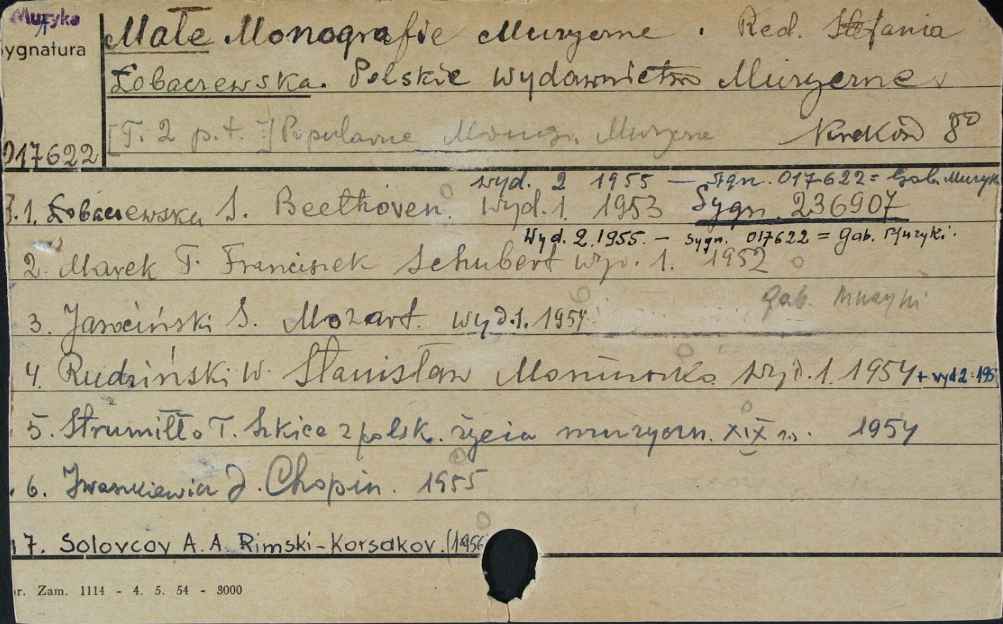 Muzyka
Sygnatura
017622
Małe Monografie Muzyczne. Red. Stefania
Łobaczewska. Polskie Wydawnictwo Muzyczne
[T. 2 p.t.:] Popularne Monogr. Muzyczne Kraków 8º
wyd. 2 1955 — Sygn. 017622 = Gab. Muzyk
1. Łobaczewska S. Beethoven. Wyd. 1. 1953 Sygn. 236907
Wyd. 2. 1955. — sygn. 017622 = gab. Muzyki.
2. Marek T. Franciszek Schubert wyd. 1. 1952
Gab. Muzyki
3. Jarociński S. Mozart. wyd. 1. 1954
4. Rudziński W. Stanisław Moniuszko. wyd. 1. 1954 + wyd 2: 195
5. Strumiłło T. Szkice z polsk. życia muzyczn. XIX w. 1954
6. Iwaszkiewicz J. Chopin. 1955
7. Solovcov A. A. Rimski-Korsakov. (1956
r. Zam. 1114 - 4. 5. 54 - 3000